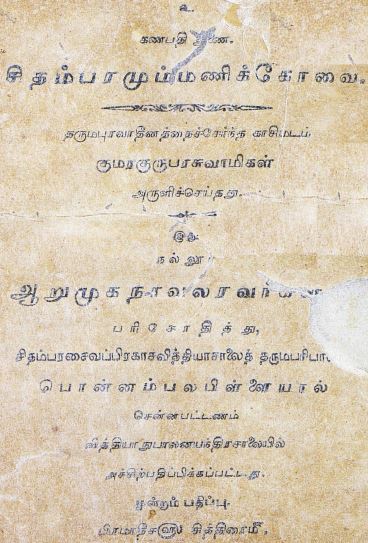 உ
கணபதி
சிதம்பரமும்மணிக்கோவை.
தருமபுரவாதீனத்தைச்சேர்ந்த காசிமடம்
குமரகுருபரசுவாமிகள்
அருளிச்செய்தது.
இது
நல்லூர்
ஆறுமுகநாவலரவர்களால்
பரிசோதித்து,
சிதம்பரசைவப்பிரகாசவித்தியாசாலைத் தருமபரிபா
பொன்னம்பலபிள்ளையால்
சென்னபட்டணம்
வித்தியாநுபாலனயந்திரசாலையில்
அச்சிற்பதிப்பிக்கப்பட்டது.
மூன்றாம் பதிப்பு.
சித்திரைமீ